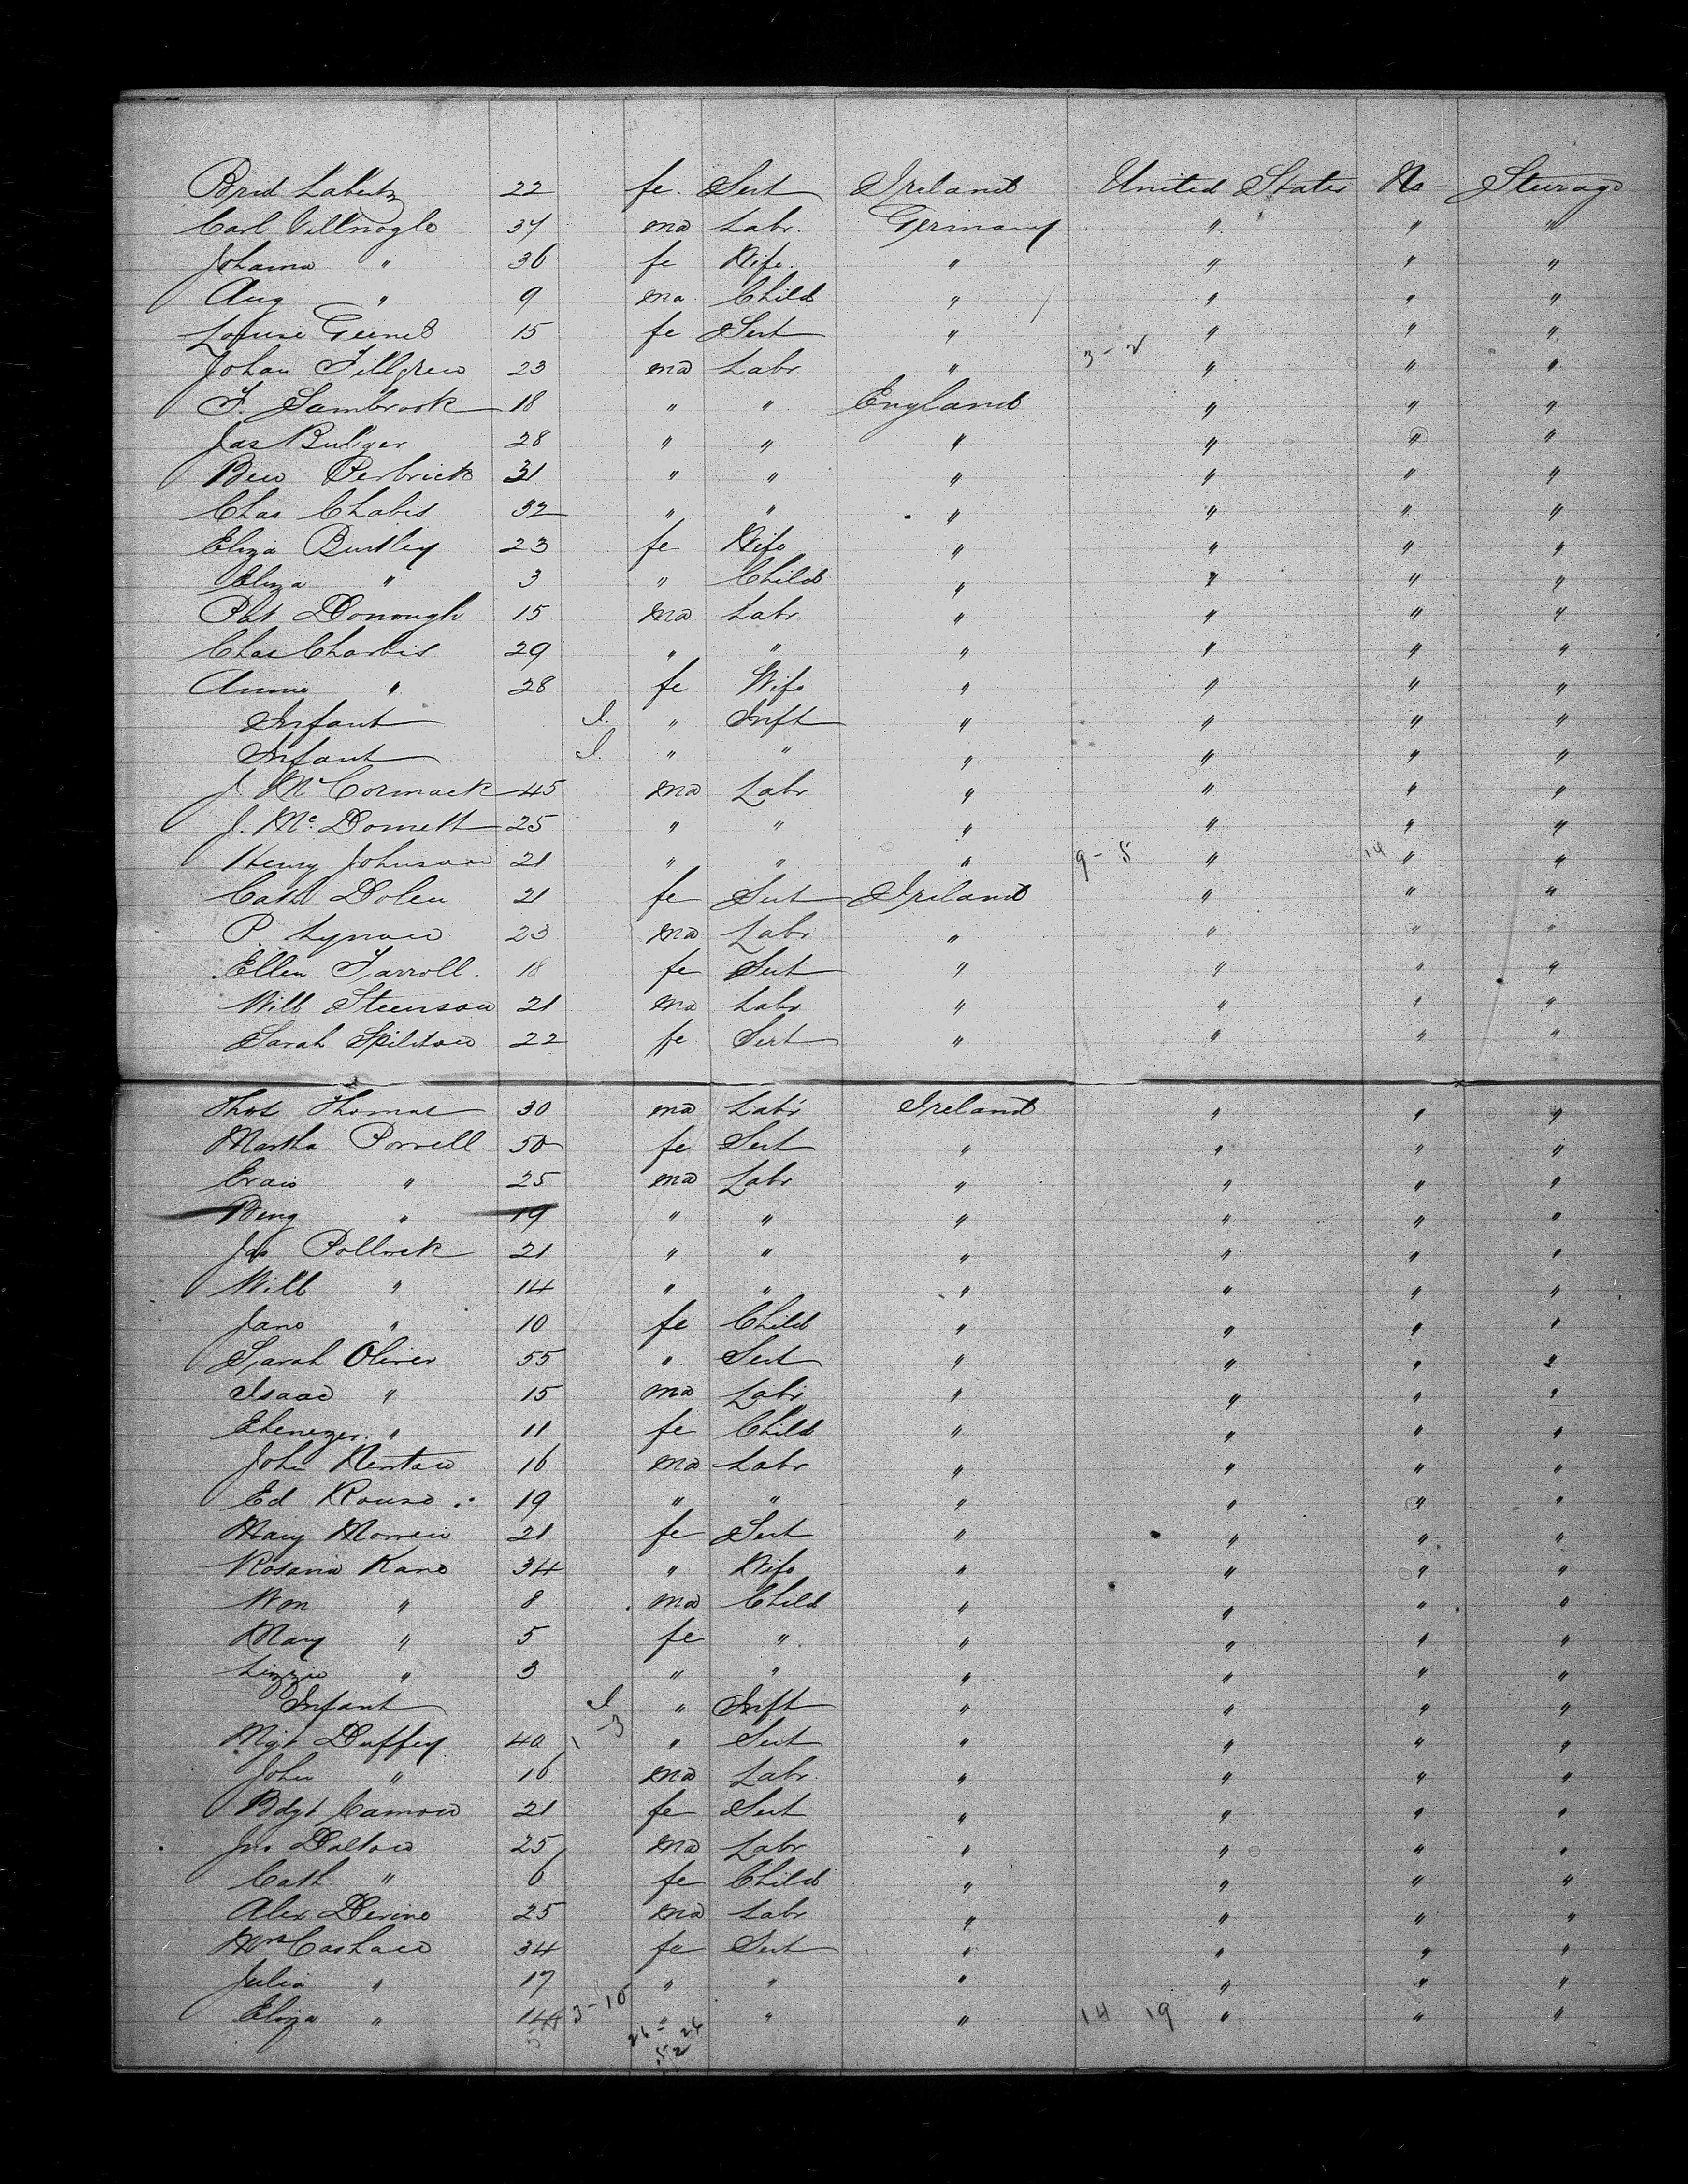 Brid Lahertz 22 fe. Sert Ireland United States No Steerage
Carl Villnogle 34 ma Labr. Germany " " "
Johanna " 36 fe Wife " " " "
Aug " 9 ma Child " " " "
15 fe Sert " " " "
Johan Tillgren 23 ma Labr " 3-2 " " "
F. Sambrook 18 " " England " " "
Jas Bulger 28 " " " " " "
Ben Perbrick 31 " " " " " "
Chas Chabis 32 " " " " " "
Eliza Burtley 23 fe Wife " " " "
Eliza " 3 " Child " " " "
Pat Donough 15 ma Labr " " " "
Chas Charbis 29 " " " " " "
Annie " 28 fe Wife " " " "
Infant I. " Inft " " " "
Infant I. " " " " " "
J. McCormack 45 ma Labr " " " "
J. Mc Donnell 25 " " " " " "
Henry Johnson 21 " " " 9-5 " 14 " "
Cath Dolen 21 fe Sert Ireland " " "
P. Lynan 23 ma Labr " " " "
Ellen Farroll. 18 fe Sert " " " "
Will Steenson 21 ma Labr " " " "
Sarah Spilitan 22 fe Sert " " " "
Thos Thomas 30 ma Labr Ireland " " "
Martha Porrell 50 fe Sert " " " "
" 25 ma Labr " " " "
Benj " 19 " " " " " "
Jas Pollock 21 " " " " " "
Will " 14 " " " " " "
Jane " 10 fe Child " " " "
Sarah Oliver 55 " Sert " " " "
Isaac " 15 ma Labr " " " "
Ebenezer. " 11 fe Child " " " "
John Renton 16 ma Labr " " " "
Ed Rouse 19 " " " " " "
Mary Morren 21 fe Sert " " " "
Rosana Kane 34 " Wife " " " "
Wm " 8 ma Child " " " "
Mary " 5 fe " " " " "
Lizzie " 3 " " " " " "
Infant I " Inft " " " "
Mgt Duffey 40 3 " Sert " " " "
John " 16 ma Labr. " " " "
Bdgt Camon 21 fe Sert " " " "
Jno Dalton 25 ma Labr " " " "
Cath " 6 fe Child " " " "
Alex Devine 25 ma Labr " " " "
Mrs Cashan 34 fe Sert " " " "
Julia " 17 " " " " " "
Eliza " 14 3-10 " " " 14 19 " " "
26 = 26
52